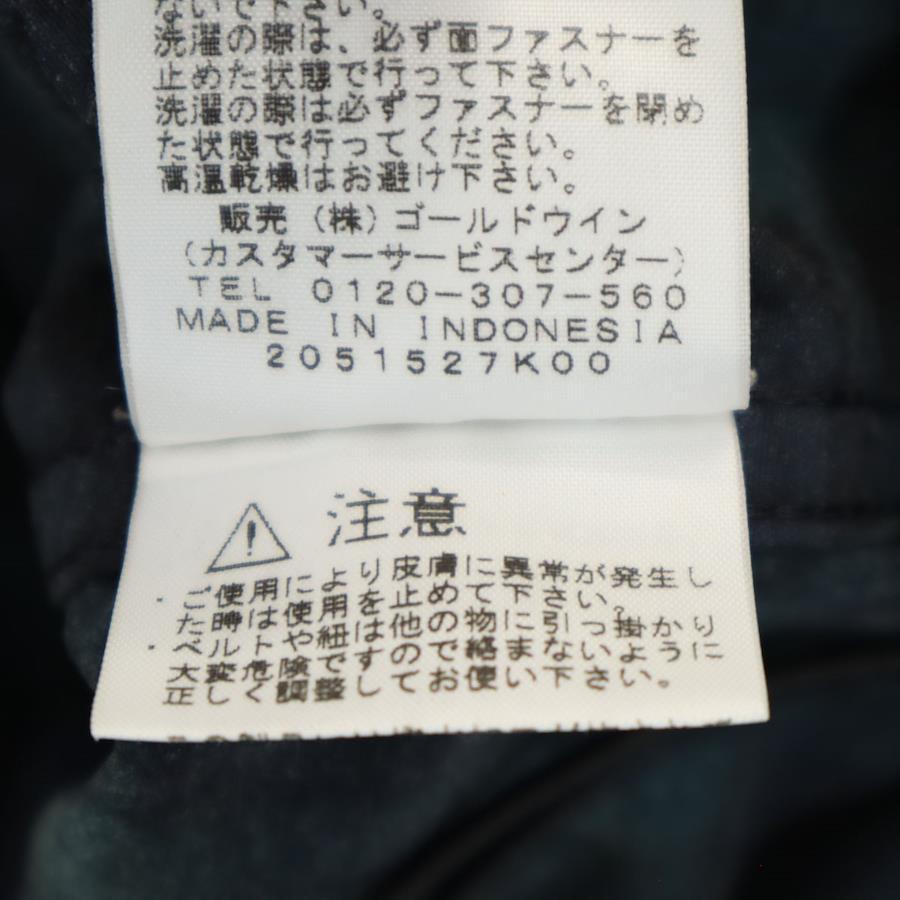 ないで下さい。
洗濯の際は、必ず面ファスナーを
止めた状態で行って下さい。
洗濯の際は必ずファスナーを閉め
た状態で行ってください。
高温乾燥はお避け下さい。
販売 (株) ゴールドウイン
(カスタマーサービスセンター)
TEL 0120-307-560
MADE IN INDONESIA
2051527K00
注意
・ご使用により皮膚に異常が発生し
た時は使用を止めて下さい。
・ベルトや紐は他の物に引っ掛かり
大変危険ですのでお絡まないように
正しく調整してお使い下さい。